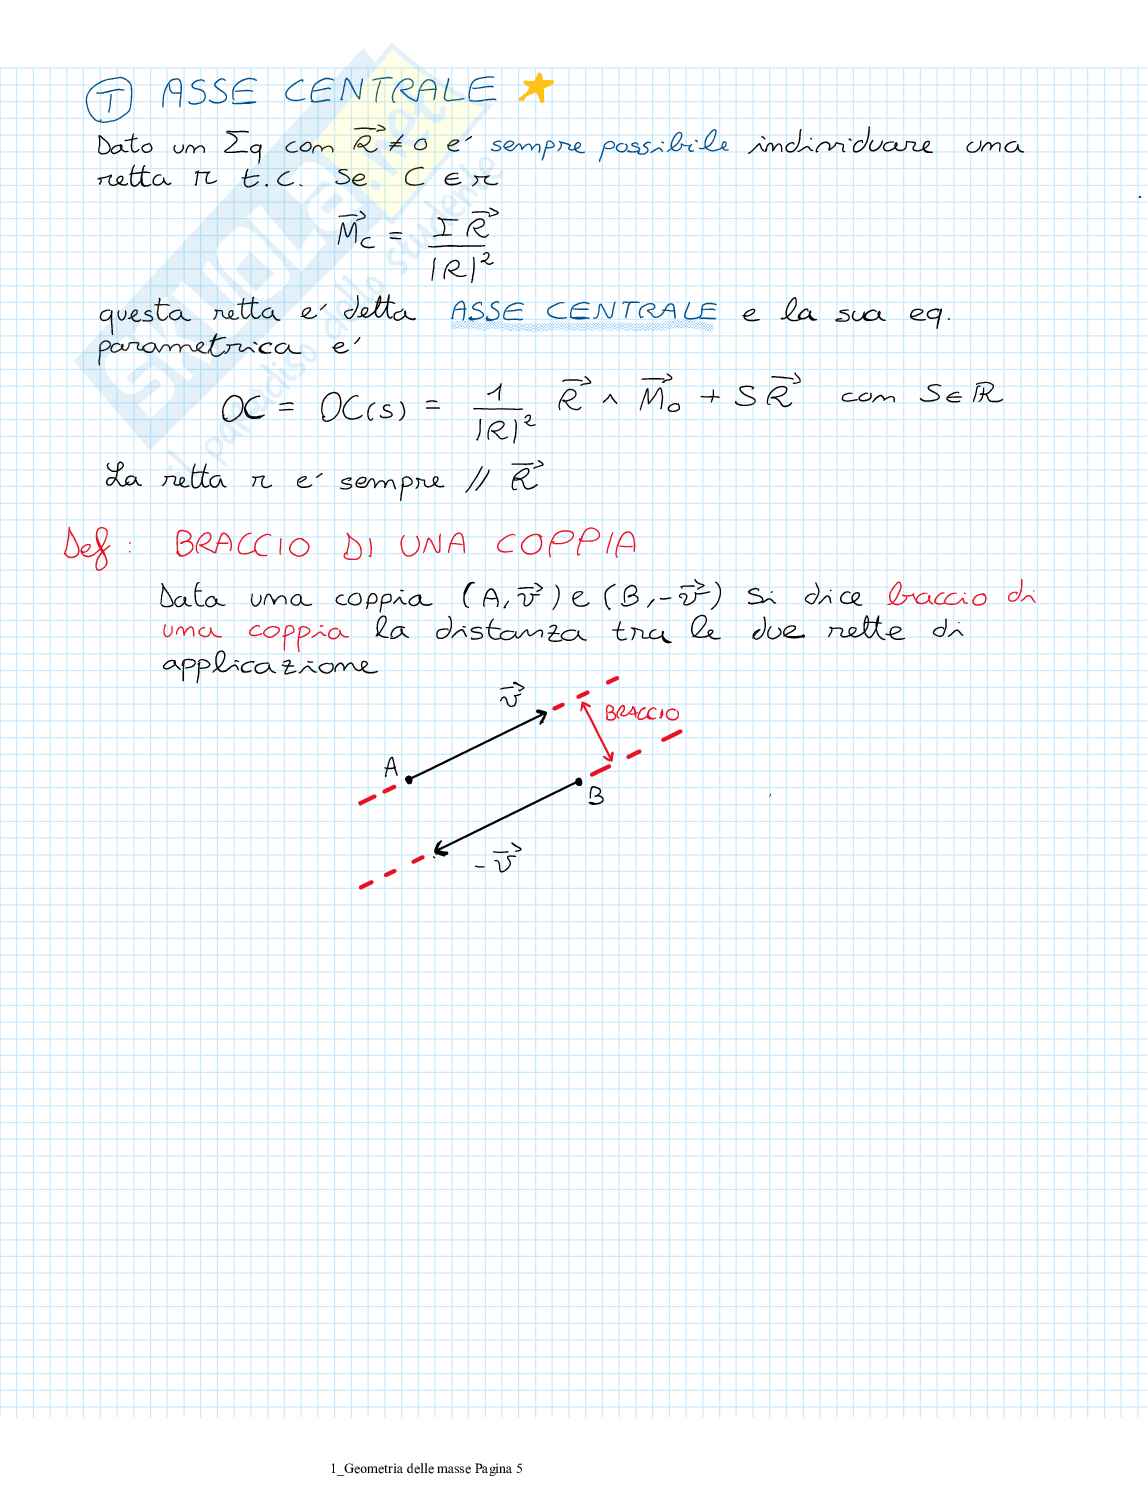 T ASSE CENTRALE
Dato un Σq con R⃗ ≠ 0 e' sempre possibile individuare una
retta r t.c. se C ∈ r
M⃗c = I R⃗ / |R|²
questa retta e' detta ASSE CENTRALE e la sua eq.
parametrica e'
OC = OC(s) = 1 / |R|² R⃗ ∧ M⃗o + S R⃗ con S ∈ ℝ
La retta r e' sempre // R⃗
Def : BRACCIO DI UNA COPPIA
Data una coppia (A, v⃗) e (B, -v⃗) si dice braccio di
una coppia la distanza tra le due rette di
applicazione
v⃗
BRACCIO
A
B
-v⃗
SKUOLA.net
il paradiso dello studente
1_Geometria delle masse Pagina 5